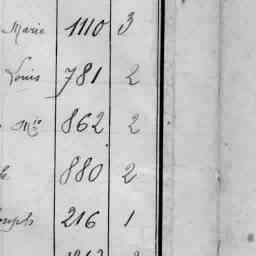 Marie 1110 3
Louis 781 2
Mie 862 2
880 2
216 1